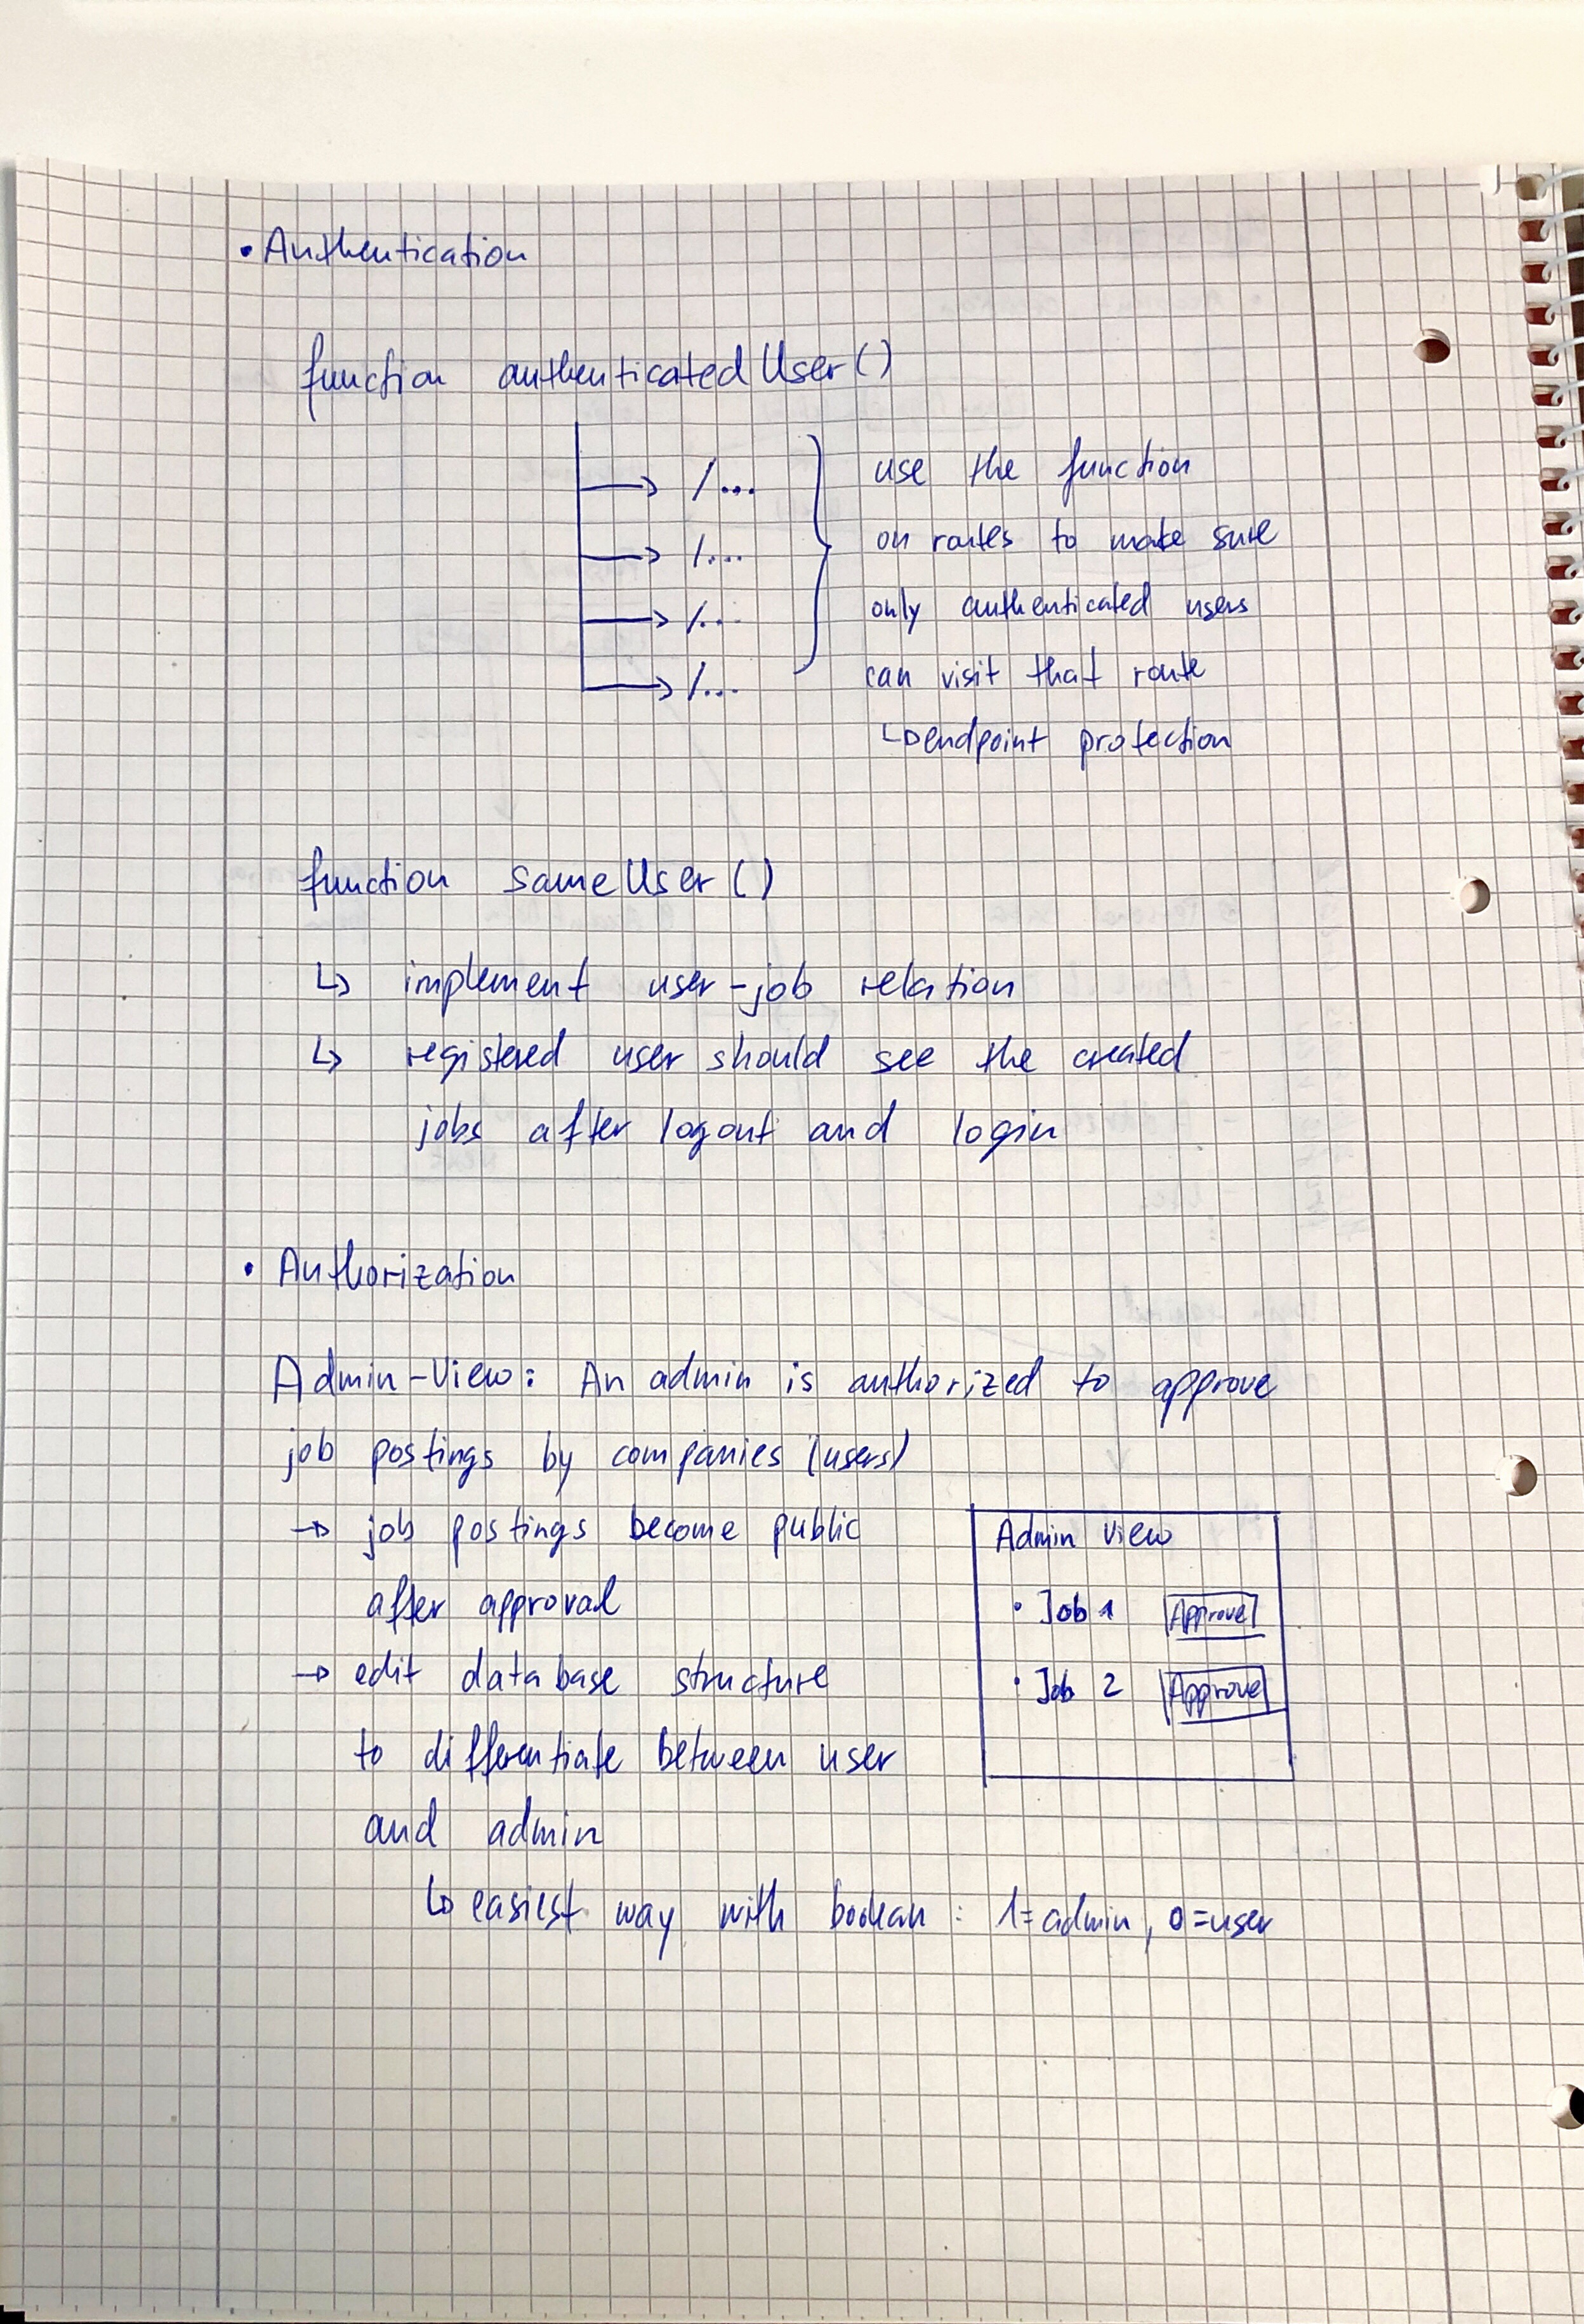 • Authentication
function authenticatedUser()
/...
/...
/...
/...
use the function
on routes to make sure
only authenticated users
can visit that route
↳ endpoint protection
function sameUser()
↳ implement user-job relation
↳ registered user should see the created
jobs after logout and login
• Authorization
Admin-View: An admin is authorized to approve
job postings by companies (users)
→ job postings become public
after approval
→ edit database structure
to differentiate between user
and admin
↳ easiest way with boolean: 1=admin, 0=user
Admin view
• Job 1 Approve
• Job 2 Approve